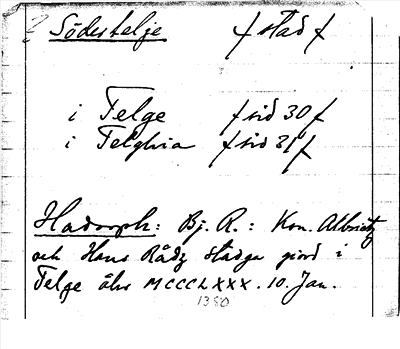 Södertelje f stad f
i Telge f sid 30 f
i Telghia f sid 31 f
Hadorph: Bj. R.: Kon. Albrictz
och Hans Rådz stadga giord i
Telge åhr MCCCLXXX. 10. Jan.
1380